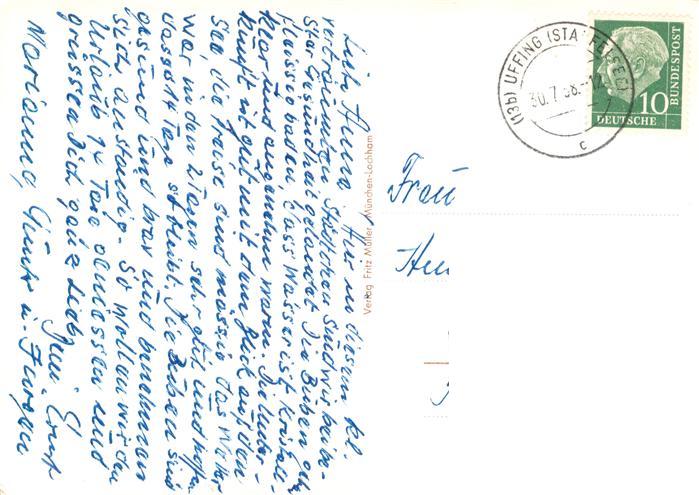 Liebe Anna! Hier in diesem kl.
verträumten Städtchen sind wir bei be-
ster Gesundheit gelandet. Die Buben gehen
fleissig baden, das Wasser ist kristal-
klar und angenehm warm. Die Unter-
kunft ist gut mit dem Blick auf den
See, die Preise sind mässig. Das Wetter
war in den 2 Tagen sehr gut und hoffen
dass es 14 Tage so bleibt. Die Buben sind
gesund und brav und benehmen
sich anständig. So wollen wir den
Urlaub 14 Tage
grüssen Dich ganz lieb
Ernst
Marianne, Günter u. Jürgen
Verlag Fritz Müller, München-Lochham
(13b) UFFING (STAFFELSEE)
30.7.58.-12
c
10
DEUTSCHE
BUNDESPOST
Frau